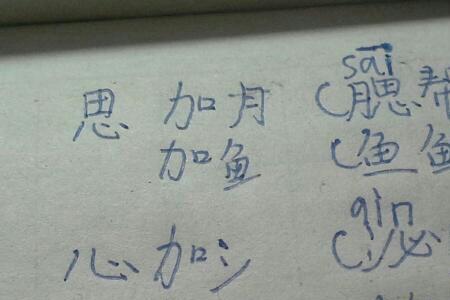 sāi
思 加月 (腮帮
加鱼 (鱼
qìn
心 加氵 (沁